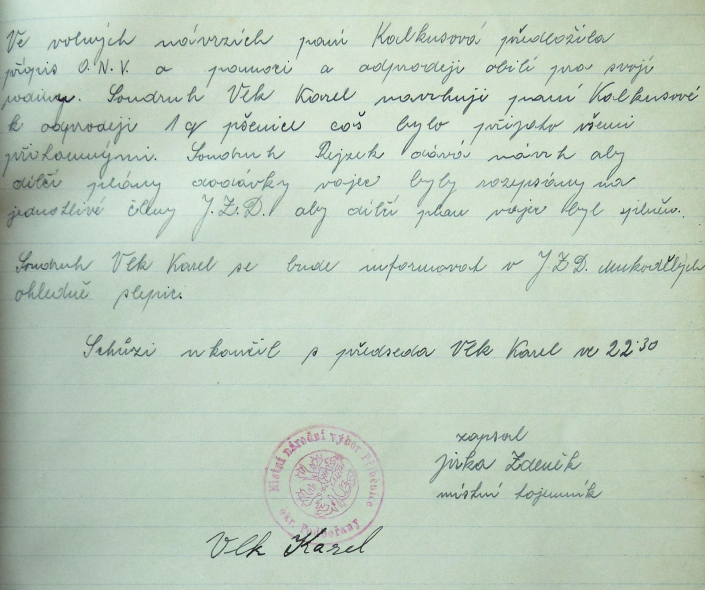 Ve volných návrzích paní Kalkusová předložila
přípis O.N.V. o pomoci a odprodeji obilí pro svojí
rodinu. Soudruh Vlk Karel navrhuji paní Kalkusové
k odprodeji 1 q pšenice což bylo přijato všemi
přítomnými. Soudruh Rejzek dává návrh aby
dílčí plány dodávky vajec byly rozepsány na
jednotlivé členy J.Z.D. aby dílčí plan vajec byl splněn.
Soudruh Vlk Karel se bude informovat v J.Z.D.
ohledně slepic.
Schůzi ukončil s předseda Vlk Karel ve 22³⁰
zapsal
Jirka Zdeněk
místní tajemník
Místní národní výbor
okr. Podbořany
Vlk Karel